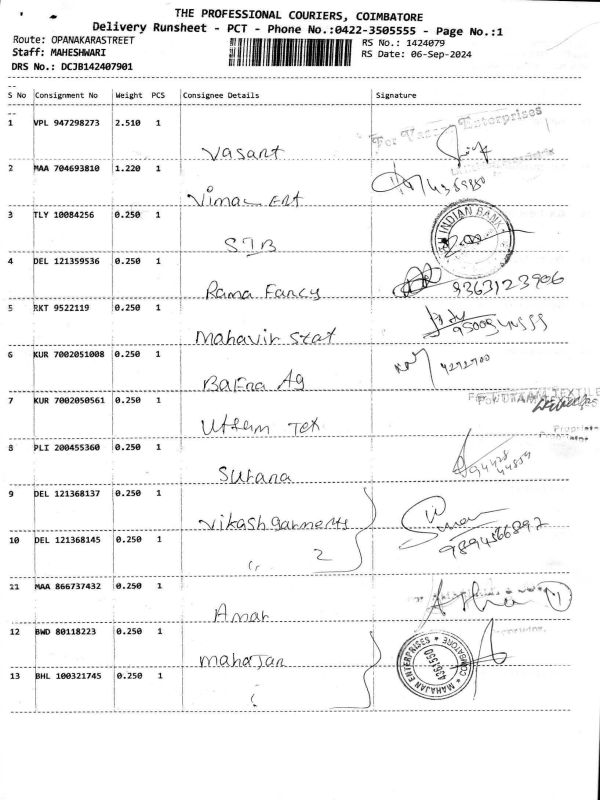 THE PROFESSIONAL COURIERS, COIMBATORE
Delivery Runsheet - PCT - Phone No.:0422-3505555 - Page No.:1
Route: OPANAKARASTREET
RS No.: 1424079
Staff: MAHESHWARI
RS Date: 06-Sep-2024
DRS No.: DCJB142407901
S No Consignment No Weight PCS Consignee Details Signature
1 VPL 947298273 2.510 1 Vasant For Vasant Enterprises
2 MAA 704693810 1.220 1 Vimal Ent
3 TLY 10084256 0.250 1 SIB INDIAN BANK
4 DEL 121359536 0.250 1 Rama Fancy 9363123906
5 RKT 9522119 0.250 1 Mahavir Stat
6 KUR 7002051008 0.250 1 Bafna Ag 4292700
7 KUR 7002050561 0.250 1 Uttam Tex For UTTAM TEXTILE
8 PLI 200455360 0.250 1 Surana 94428 44859
9 DEL 121368137 0.250 1 Vikash garments
10 DEL 121368145 0.250 1 " 2 9894566892
11 MAA 866737432 0.250 1 Amar
12 BWD 80118223 0.250 1 mahajan MAHAJAN ENTERPRISES * COIMBATORE * 4361550
13 BHL 100321745 0.250 1